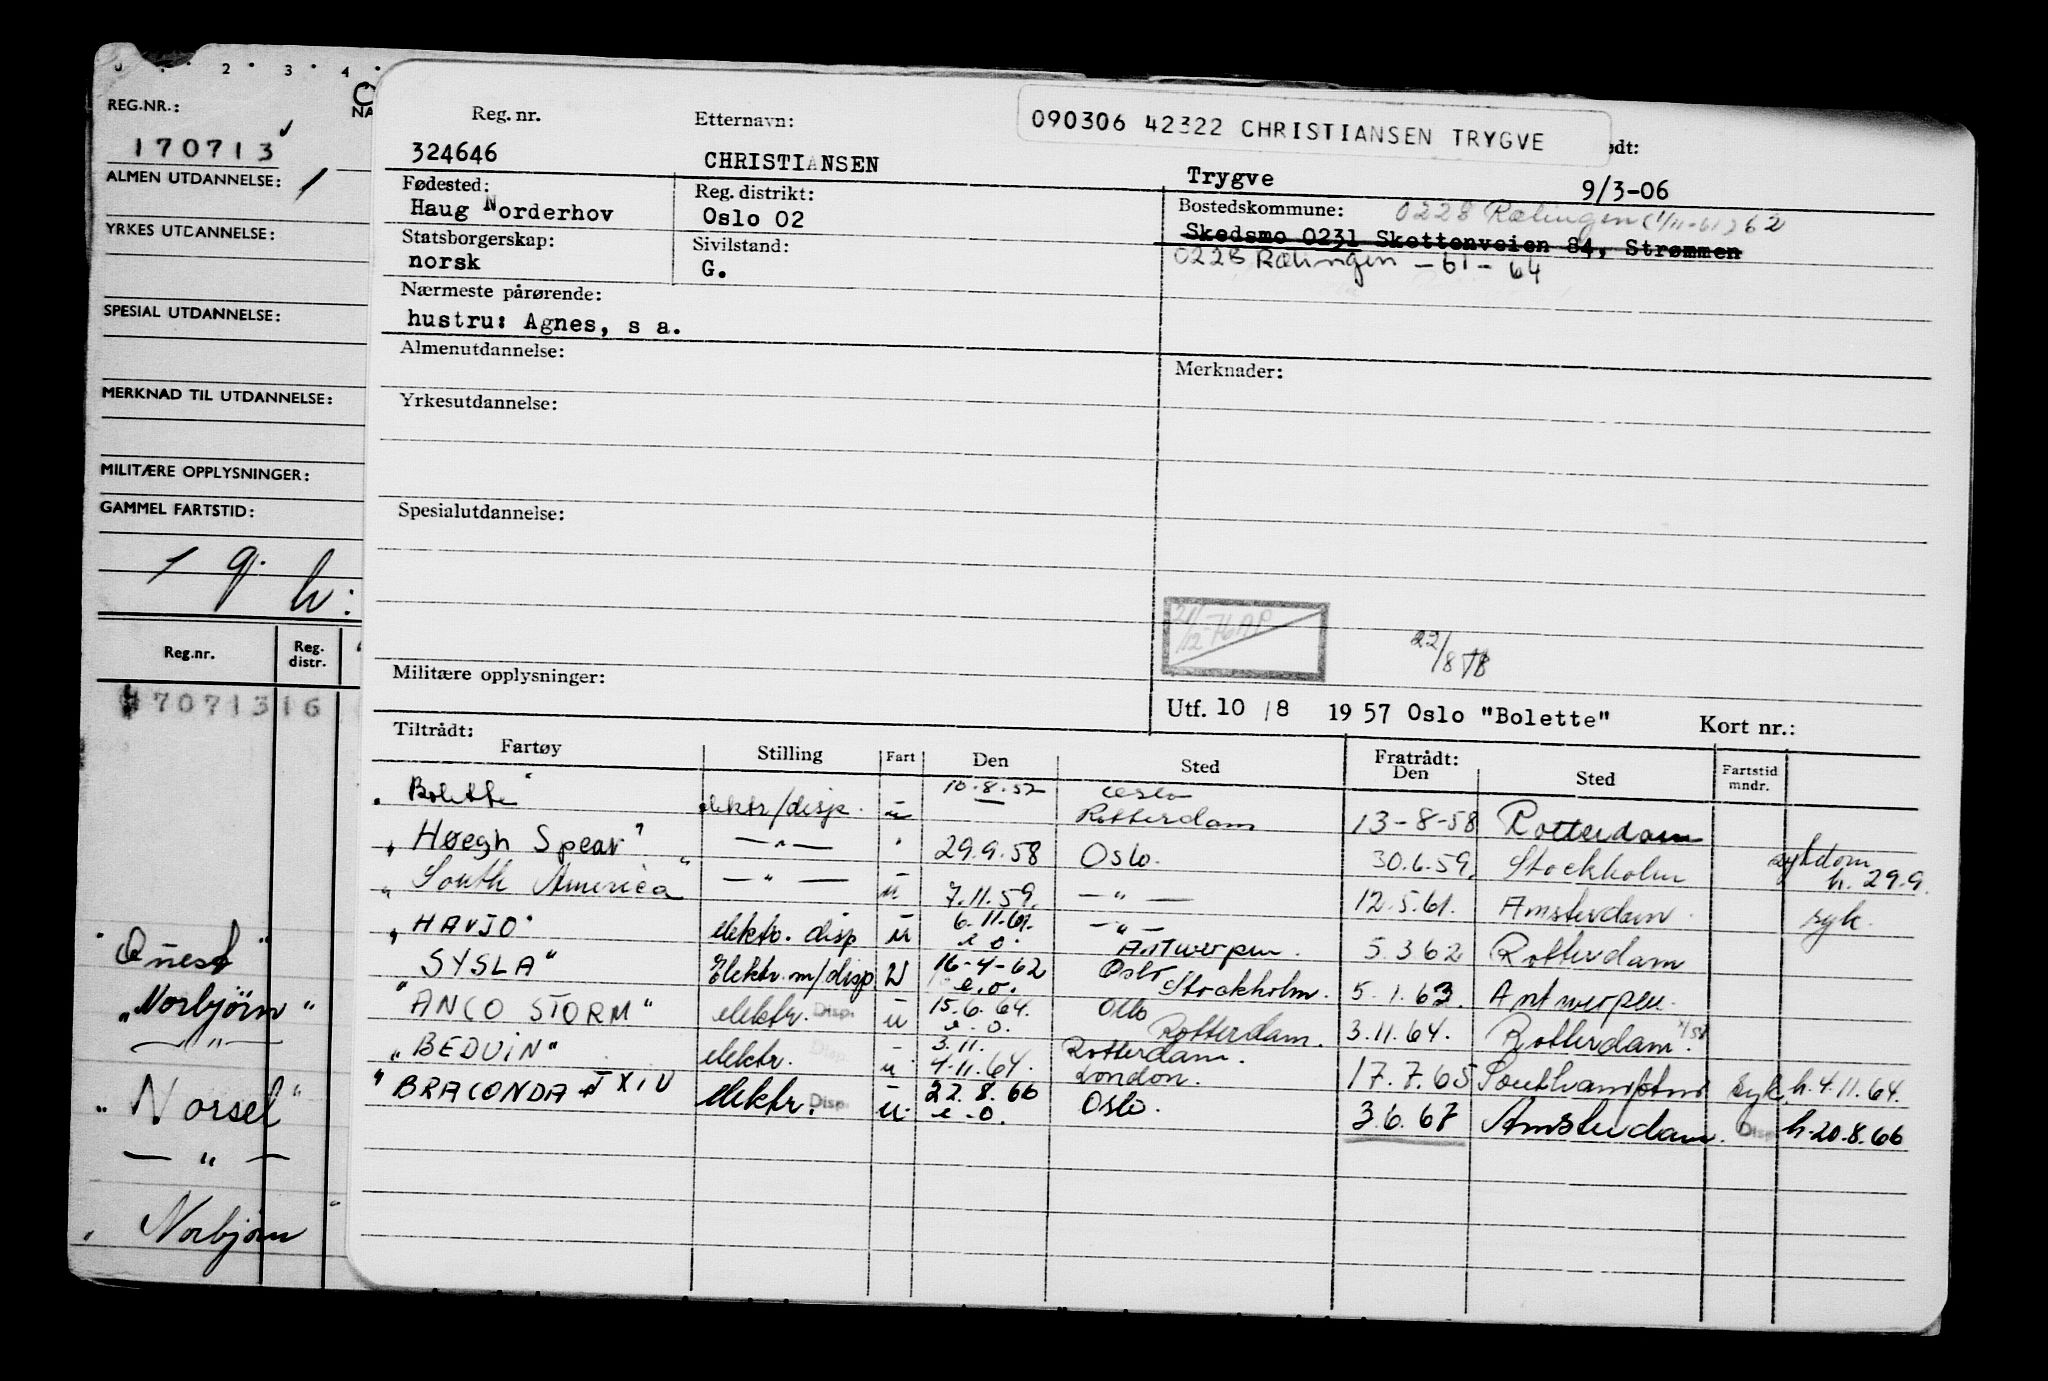 REG.NR.:
170713
ALMEN UTDANNELSE: 1
YRKES UTDANNELSE:
SPESIAL UTDANNELSE:
MERKNAD TIL UTDANNELSE:
MILITÆRE OPPLYSNINGER:
GAMMEL FARTSTID:
Reg.nr. Reg. distr.
7071316
"Quest"
"Norbjörn"
— " —
"Norsel"
— " —
"Norbjörn"
Reg. nr. Etternavn: 090306 42322 CHRISTIANSEN TRYGVE ødt:
324646 CHRISTIANSEN Trygve 9/3-06
Fødested: Reg. distrikt: Bostedskommune: 0228 Rælingen (1/11-61) 262
Haug Norderhov Oslo 02 Skedsmo 0231 Skottenveien 84, Strømmen
Statsborgerskap: Sivilstand: 0228 Rælingen -61-64
norsk G.
Nærmeste pårørende:
hustru: Agnes, s a.
Almenutdannelse: Merknader:
Yrkesutdannelse:
Spesialutdannelse:
21/12-76 AP
22/8
Militære opplysninger:
Utf. 10 /8 19 57 Oslo "Bolette" Kort nr.:
Tiltrådt: Fratrådt:
Fartøy Stilling Fart Den Sted Den Sted Fartstid mndr.
"Bolette" elektr/disp. u 10.8.57 — Oslo Rotterdam 13-8-58 Rotterdam
"Høegh Spear" — " — " 29.9.58 Oslo. 30.6.59. Stockholm sykdom h. 29.9.
"South America" — " — u 7.11.59. — " — 12.5.61. Amsterdam. syk.
"HAVJO" elektr. disp u 6.11.61. e.o. — " — Antwerpen. 5.3 62 Rotterdam
"SYSLA" Elektr. m/disp U 16-4-62 e.o. Oslo Stockholm. 5.1.63. Antwerpen.
"ANCO STORM" elektr. Disp. u 15.6.64. e.o. Oslo Rotterdam. 3.11.64. Rotterdam.
"BEDUIN" elektr. Disp. u 3.11. 4.11.64. Rotterdam. London. 17.7.65 Southampton syk. h. 4.11.64.
"BRACONDA" TXIV elektr. Disp. u. 22.8.66 e.o. Oslo. 3.6.67 Amsterdam. Disp. h. 20.8.66